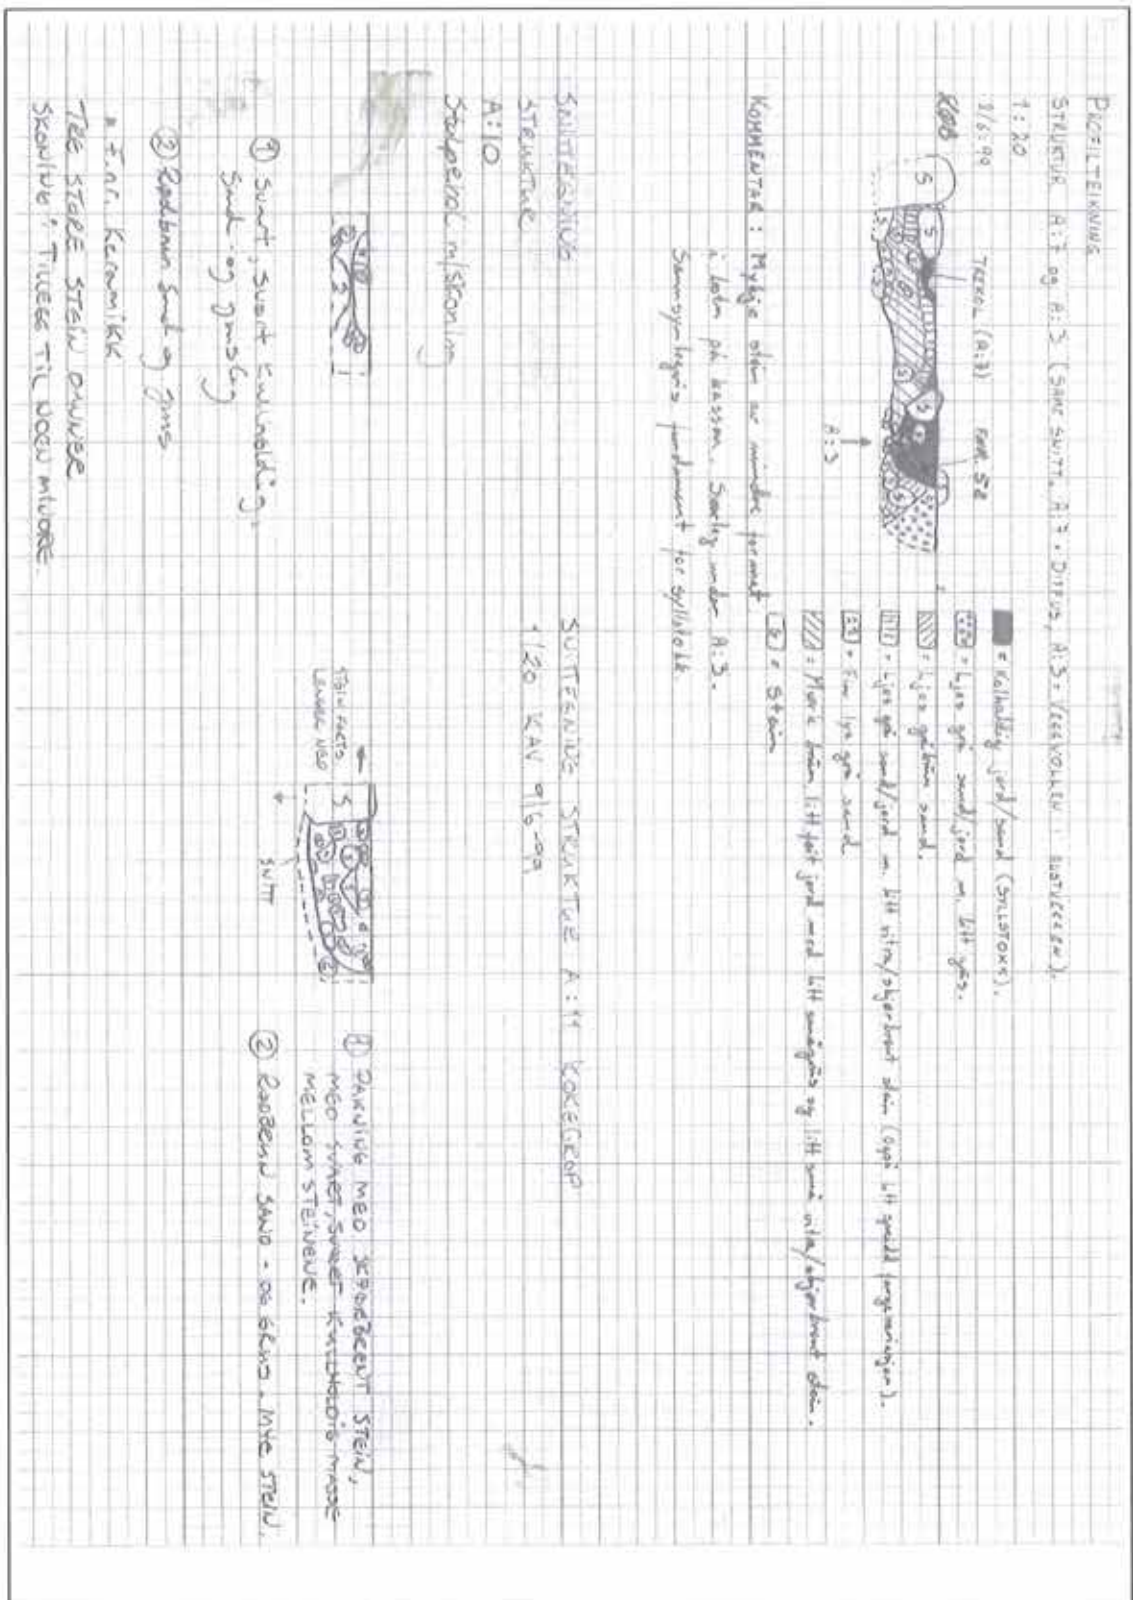 PROFILTEIKNING
STRUKTUR A:7 og A:3 (SAME SNITT. A:7 = DIFFUS, A:3 = VEGGVOLLEN I AUSTVEGGEN).
1:20
8/6-99
TREKOL (A:7) FNR. 52
S
S
S
A:3
= Kolhaldig jord/sand (SYLLSTOKK).
= Ljos grå sand/jord m. litt grus.
= Ljos gråbrun sand.
= Ljos grå sand/jord m. litt vitra/skjørbrent stein (også litt
= Fin lys grå sand
= Mørk brun, litt feit jord med litt smågrus og litt små vitra/skjørbrent stein.
= Stein
KOMMENTAR: Mykje stein av mindre format
i botn på kassen. Særleg under A:3.
Sannsynlegvis fundament for syllstokk.
SNITTEGNING
STRUKTUR
A:10
Stolpehol m/skoning
2
① Svart, svart kullholdig,
Sand- og grusleg
② Rødbrun sand og grus
F.nr. Keramikk
TRE STORE STEIN DANNER
SKONING I TILLEGG TIL NOEN MINDRE.
SNITTEGNING STRUKTUR A:11 KOKEGROP
1/20 KAV 9/6-99
STEIN FORTS.
LENGER NED
S
SNITT
① PAKNING MED SKJØRBRENT STEIN,
MED SVART, SVART KULLHOLDIG MASSE
MELLOM STEINENE.
② RØDBRUN SAND- OG GRUS - MYE STEIN.